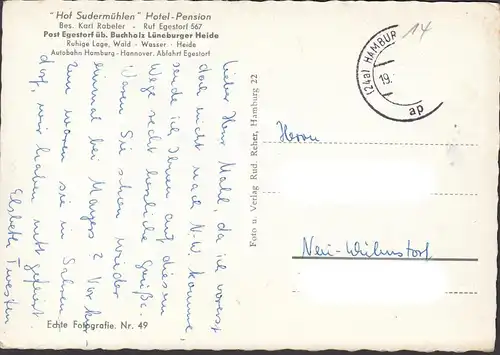 "Hof Sudermühlen" Hotel-Pension
Bes. Karl Rabeler - Ruf Egestorf 567
Post Egestorf üb. Buchholz Lüneburger Heide
Ruhige Lage, Wald - Wasser - Heide
Autobahn Hamburg-Hannover. Abfahrt Egestorf
14
(24a) HAMBUR
19.
ap
Lieber Herr Mahl, da ich vorerst
doch nicht nach N.-W. komme
sende ich Ihnen auf diesem
Wege recht herzliche Grüße.
Waren Sie schon wieder
einmal bei Meyers? Vor kur-
zem waren sie in Sahren-
dorf, wir haben mit gefeiert
Elsbeth Twesten
Foto u. Verlag Rud. Reher, Hamburg 22
Herrn
Neu-Wulmstorf
Echte Fotografie. Nr. 49